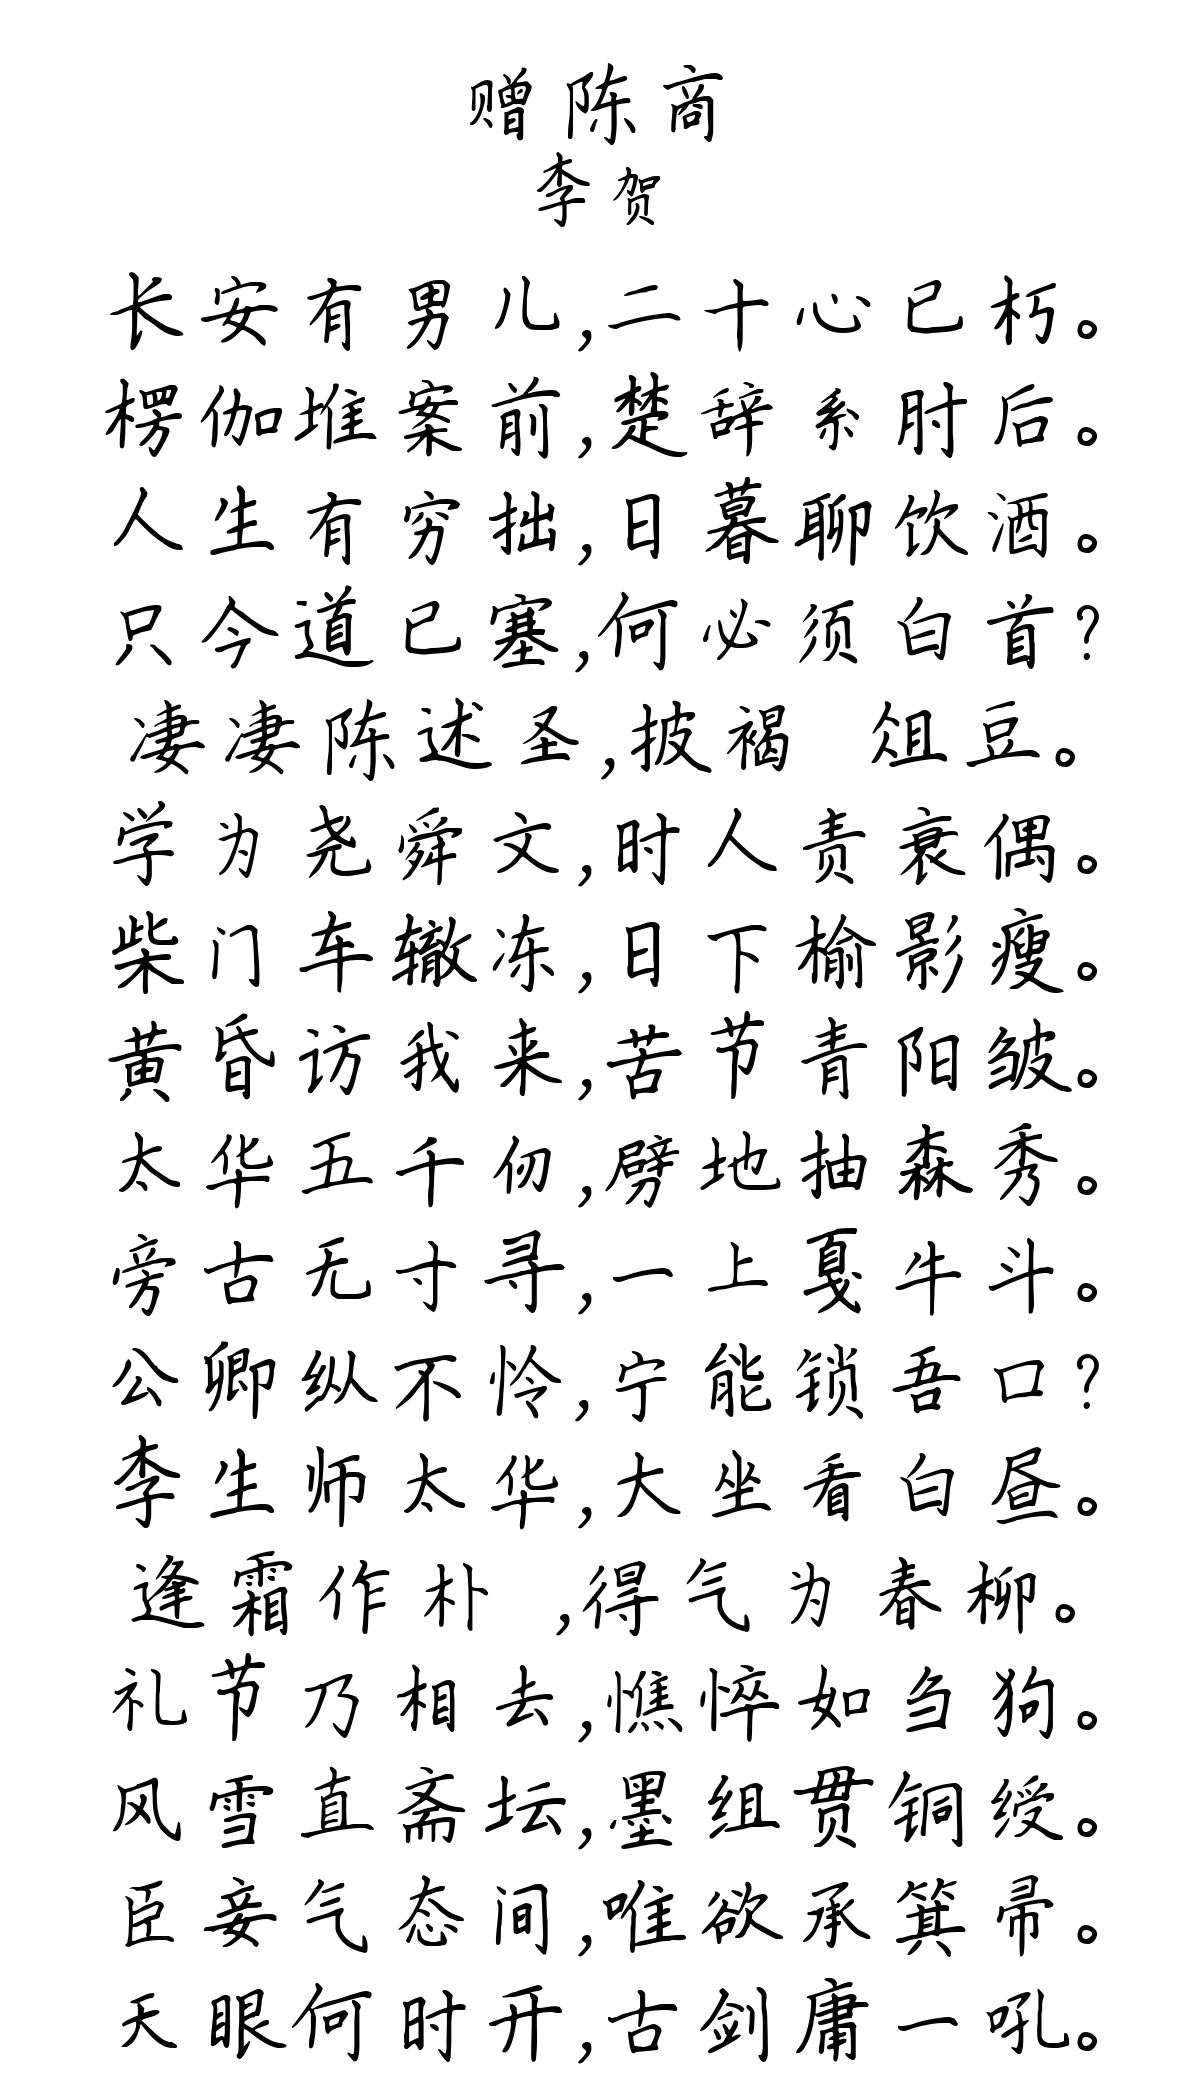 赠陈商
李贺
长安有男儿,二十心已朽。
楞伽堆案前,楚辞系肘后。
人生有穷拙,日暮聊饮酒。
只今道已塞,何必须白首?
凄凄陈述圣,披褐 俎豆。
学为尧舜文,时人责衰偶。
柴门车辙冻,日下榆影瘦。
黄昏访我来,苦节青阳皱。
太华五千仞,劈地抽森秀。
旁古无寸寻,一上戛牛斗。
公卿纵不怜,宁能锁吾口?
李生师太华,大坐看白昼。
逢霜作朴 ,得气为春柳。
礼节乃相去,憔悴如刍狗。
风雪直斋坛,墨组贯铜绶。
臣妾气态间,唯欲承箕帚。
天眼何时开,古剑庸一吼。